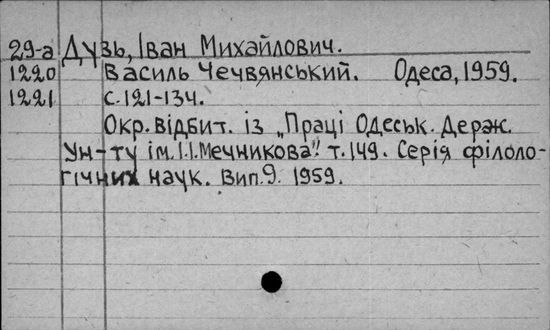 29-а Дузь, Іван Михайлович.
1220 Василь Чечвянський. Одеса, 1959.
1221 с. 121-134.
Окр. відбит. із „Праці Одеськ. Держ.
Ун-ту ім. І.І. Мечникова". т. 149. Серія філоло-
гічних наук. Вип. 9. 1959.